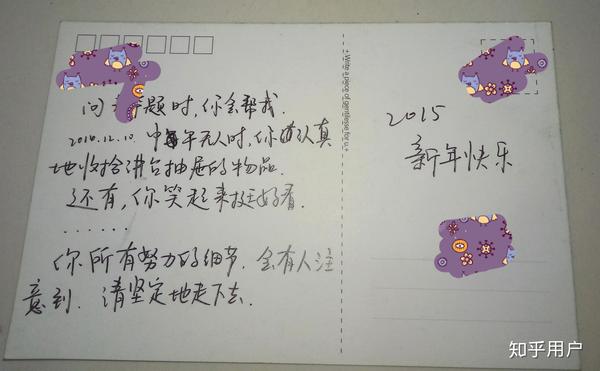 问 题时,你会帮我.
2014.12.10. 中午无人时,你认真
地收拾讲台抽屉的物品.
还有,你笑起来挺好看.
......
你所有努力的细节,会有人注
意到.请坚定地走下去.
Write a piece of gentlesse for u.
2015
新年快乐
知乎用户